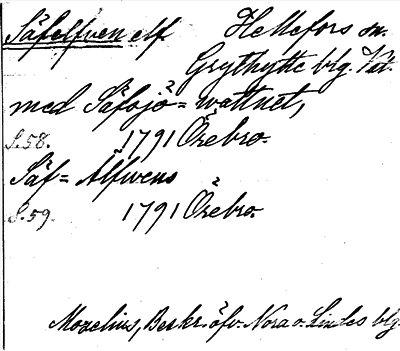 Säfelfven elf Hellefors sn.
Grythytte blg. Vst.
med Säfsjö=wattnet,
S. 58. 1791 Örebro.
Säf=Älfwens
S. 59. 1791 Örebro.
Mozelius, Beskr. öfv. Nora o. Lindes blg.